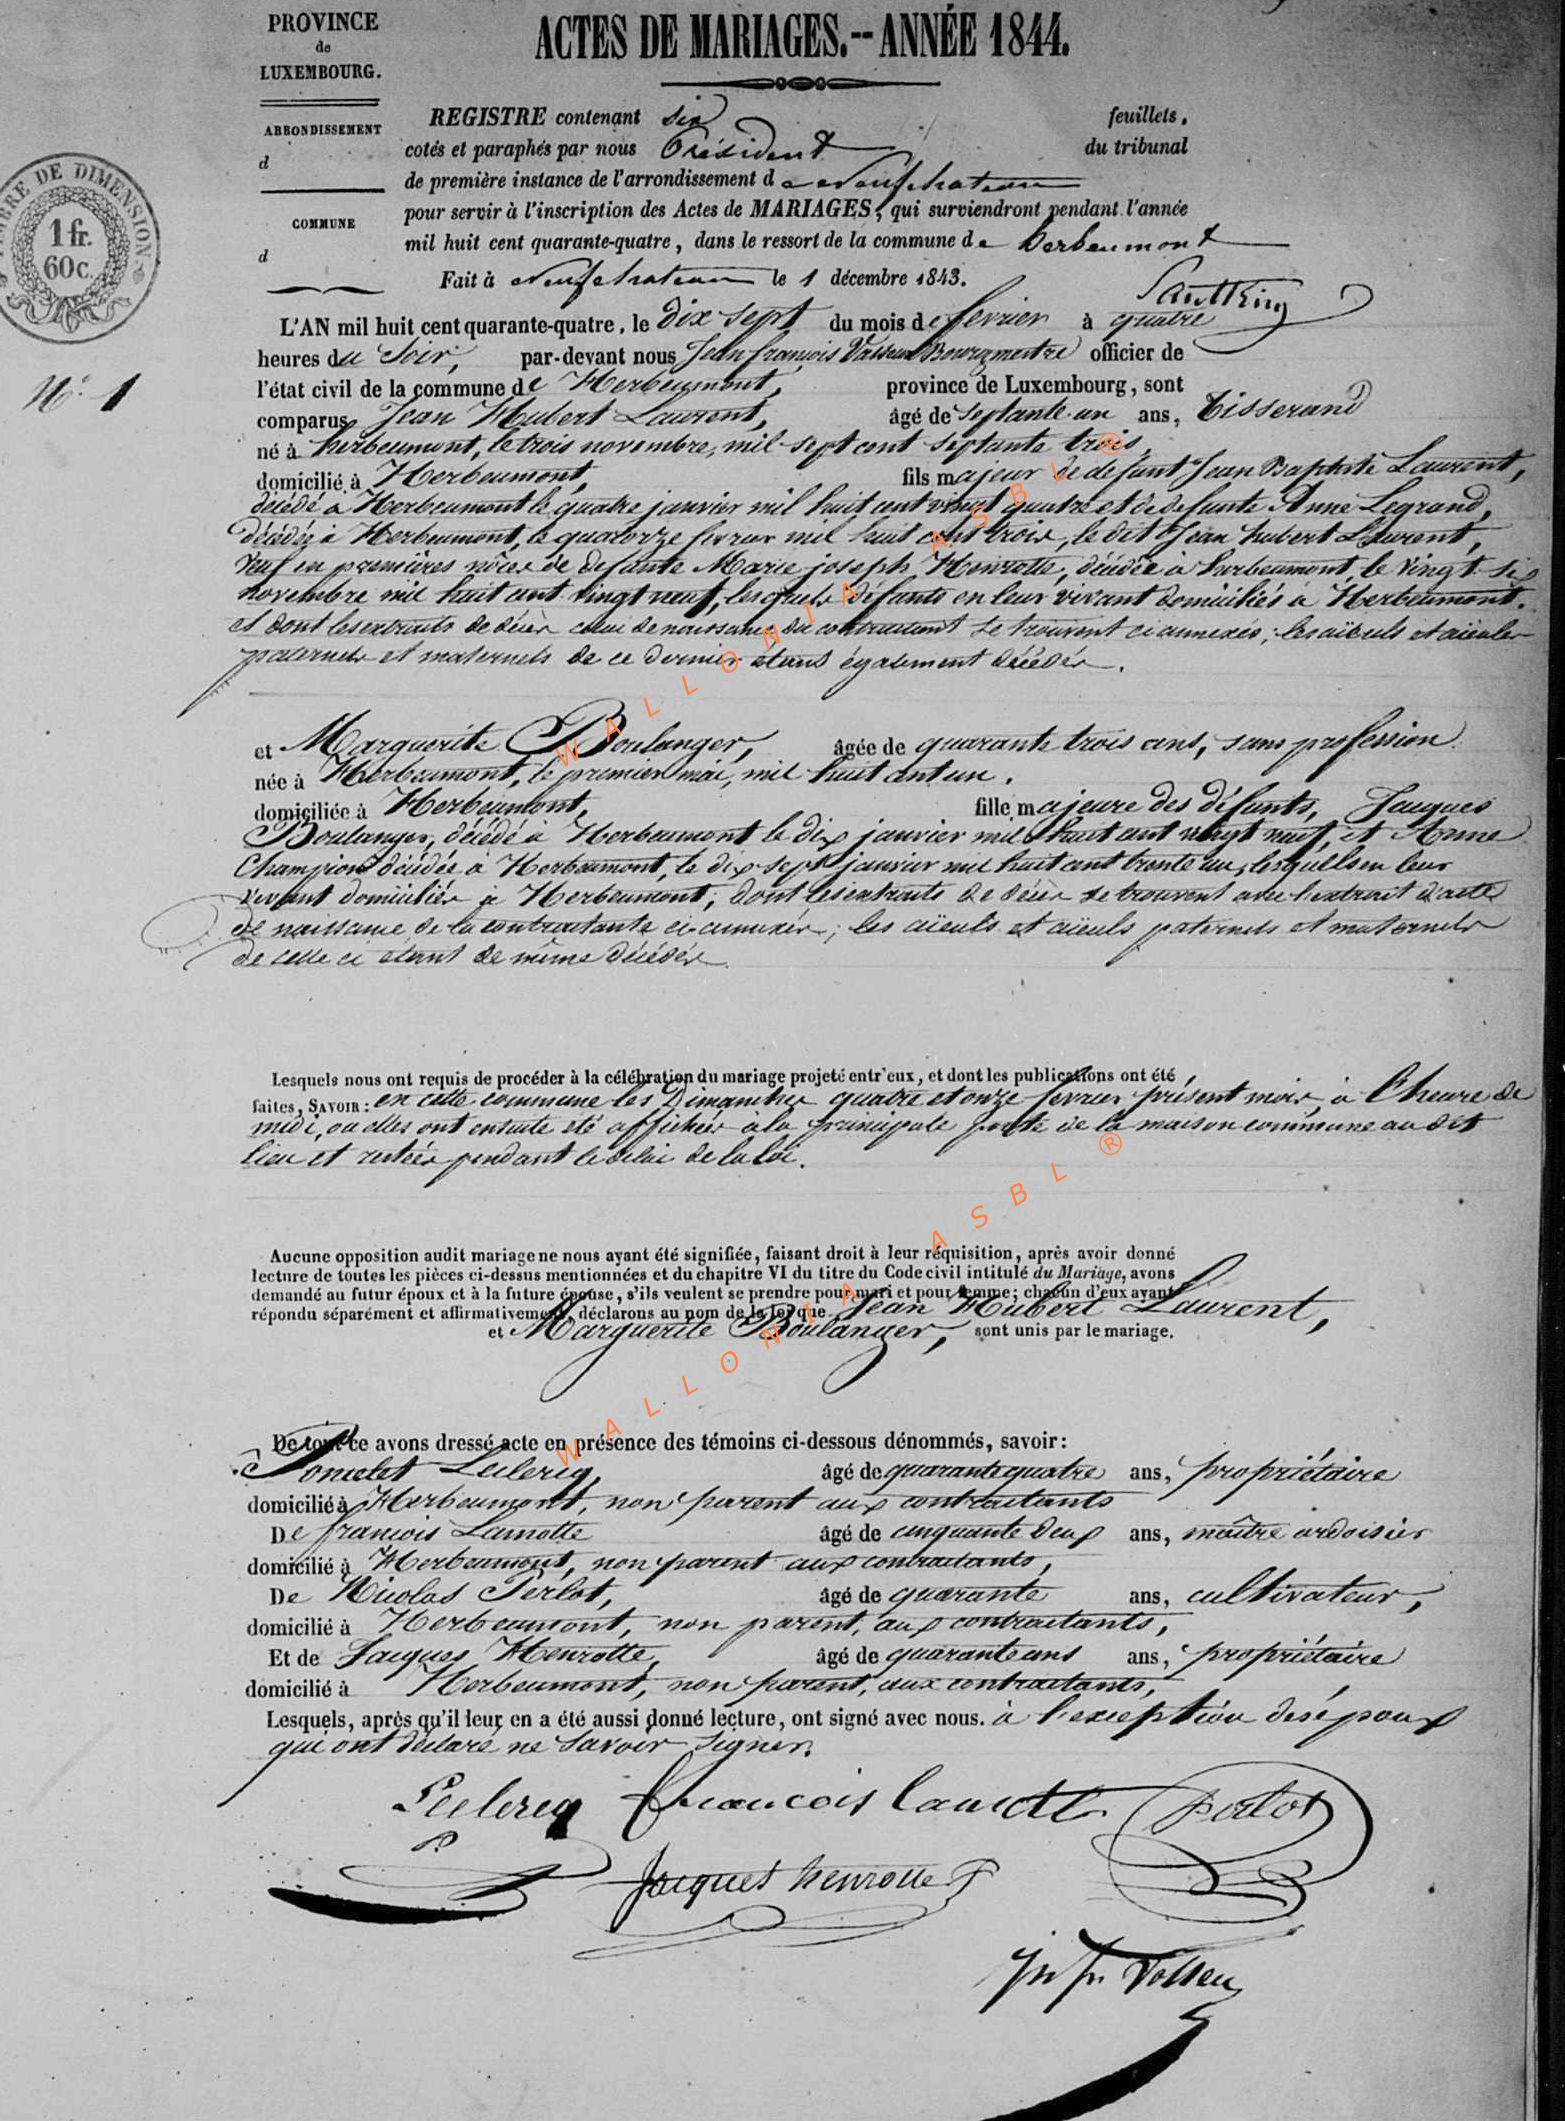 PROVINCE
de
LUXEMBOURG.
ACTES DE MARIAGES.-- ANNÉE 1844.
ARRONDISSEMENT
d
COMMUNE
d
TIMBRE DE DIMENSION
1 fr.
60 c.
REGISTRE contenant six feuillets,
cotés et paraphés par nous Président du tribunal
de première instance de l'arrondissement de Neufchateau
pour servir à l'inscription des Actes de MARIAGES, qui surviendront pendant l'année
mil huit cent quarante-quatre, dans le ressort de la commune de herbeumont
Fait à Neufchateau le 1 décembre 1843.
L'AN mil huit cent quarante-quatre, le dix sept du mois de fevrier à quatre
heures du Soir, par-devant nous Jean françois Bourgmestre officier de
N° 1
l'état civil de la commune de Herbeumont, province de Luxembourg, sont
comparus Jean Hubert Laurent, âgé de septante un ans, Tisserand
né à herbeumont, le trois novembre, mil sept cent septante trois,
domicilié à Herbeumont, fils majeur de defunt Jean Baptiste Laurent,
décédé à Herbeumont le quatre janvier mil huit cent vingt quatre et de defunte Anne Legrand,
décédée à Herbeumont, le quatorze fevrier mil huit cent trois, le dit Jean hubert Laurent,
Veuf en premières nôces de defunte Marie joseph Henrotte, décédée à herbeumont, le vingt six
novembre mil huit cent vingt neuf, lesquels défunts en leur vivant domiciliés à Herbeumont.
et dont les extraits de décès celui de naissance du contractant se trouvent ci annexés; les aïeuls et aïeules
paternels et maternels de ce dernier étant également décédés.
et Marguerite Boulanger, âgée de quarante trois ans, sans profession
née à Herbeumont, le premier mai, mil huit cent un.
domiciliée à Herbeumont, fille majeure des défunts, Jacques
Boulanger, décédé à Herbeumont le dix janvier mil huit cent vingt neuf, et Anne
Champion décédée à Herbeumont, le dix sept janvier mil huit cent trente un, lesquels en leur
vivant domiciliés à Herbeumont, dont les extraits de décès se trouvent avec l'extrait d'acte
de naissance de la contractante ci annexés; les aïeuls et aïeuls paternels et maternels
de celle ci étant de même décédés.
Lesquels nous ont requis de procéder à la célébration du mariage projeté entr'eux, et dont les publications ont été
faites, SAVOIR: en cette commune les Dimanches quatre et onze fevrier présent mois, à l'heure de
midi, ou elles ont ensuite été affichées à la principale porte de la maison commune au dit
lieu et restées pendant le delai de la loi.
Aucune opposition audit mariage ne nous ayant été signifiée, faisant droit à leur réquisition, après avoir donné
lecture de toutes les pièces ci-dessus mentionnées et du chapitre VI du titre du Code civil intitulé du Mariage, avons
demandé au futur époux et à la future épouse, s'ils veulent se prendre pour mari et pour femme; chacun d'eux ayant
répondu séparément et affirmativement, déclarons au nom de la loi que Jean Hubert Laurent,
et Marguerite Boulanger, sont unis par le mariage.
De tout ce avons dressé acte en présence des témoins ci-dessous dénommés, savoir:
Poncelet Leclercq, âgé de quarante quatre ans, propriétaire
domicilié à Herbeumont, non parent aux contractants
De francois Lamotte âgé de cinquante deux ans, maître ardoisier
domicilié à Herbeumont, non parent aux contractants,
De Nicolas Perlot, âgé de quarante ans, cultivateur,
domicilié à Herbeumont, non parent, aux contractants,
Et de Jacques Henrotte, âgé de quarante ans ans, propriétaire
domicilié à Herbeumont, non parent, aux contractants,
Lesquels, après qu'il leur en a été aussi donné lecture, ont signé avec nous. à l'exception des époux
qui ont déclaré ne savoir signer.
Leclercq francois lamotte Perlot
P.
Jacques henrotte
WALLONIA ASBL ®
WALLONIA ASBL ®